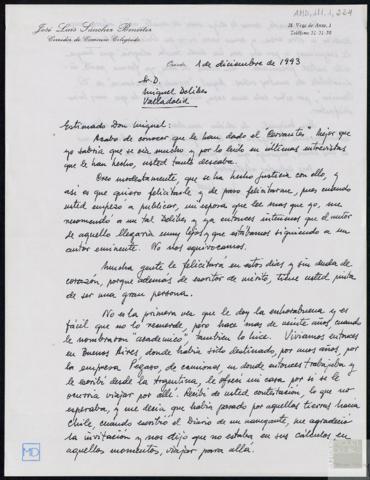 AMD, 111, 1, 224
José Luis Sánchez Benítez
Corredor de Comercio Colegiado
28, 3
Teléfono 21 21 20
Oviedo 1 diciembre de 1993
Sr. D.
Miguel Delibes
Valladolid
Estimado Don Miguel:
Acabo de conocer que le han dado el "Cervantes". Mejor que
yo sabría que se iría mucho y por lo leído en últimas entrevistas
que le han hecho, usted tanto deseaba.
Creo modestamente, que se ha hecho justicia con ello, y
así es que quiero felicitarle y de paso felicitarme, pues cuando
usted empezó a publicar, mi esposa, que lee mas que yo, me
recomendó a un tal Delibes y ya entonces intuimos que el autor
de aquello llegaría muy lejos y que estábamos siguiendo a un
autor eminente. No nos equivocamos.
Mucha gente le felicitará en estos días y sin duda de
corazón, porque además de escritor de mérito, tiene usted pinta
de ser una gran persona.
No es la primera vez que le doy la enhorabuena y es
fácil que no lo recuerde, pero hace mas de veinte años, cuando
le nombraron "academico", tambien lo hice. Viviamos entonces
en Buenos Aires, donde había sido destinado, por unos años, por
la empresa Pegaso, de camiones, en donde entonces trabajaba y
le escribí desde la Argentina, le ofrecí mi casa por si se le
ocurría viajar por allí. Recibí de usted contestación, lo que no
esperaba, y me decía que había pasado por aquellas tierras hacia
Chile, cuando escribió el Diario de un emigrante, me agradecía
la invitación y nos dijo que no estaba en sus cálculos, en
aquellos momentos, viajar para allá.
MD